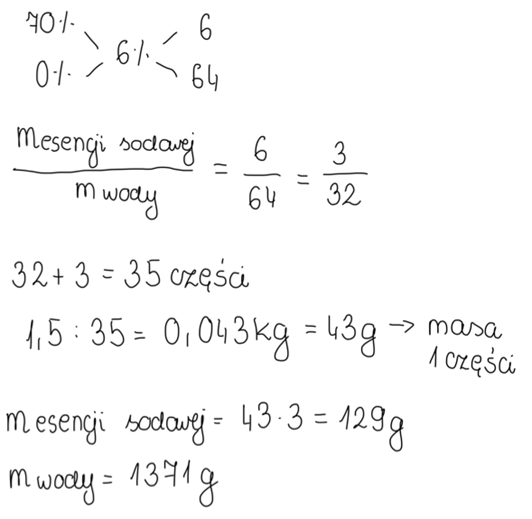 70%
6
6%
0%
64
mesengi sodowej
m wody
= 6/64 = 3/32
32 + 3 = 35 części
1,5 : 35 = 0,043kg = 43g → masa
1 części
mesengi sodowej = 43 · 3 = 129g
m wody = 1371g